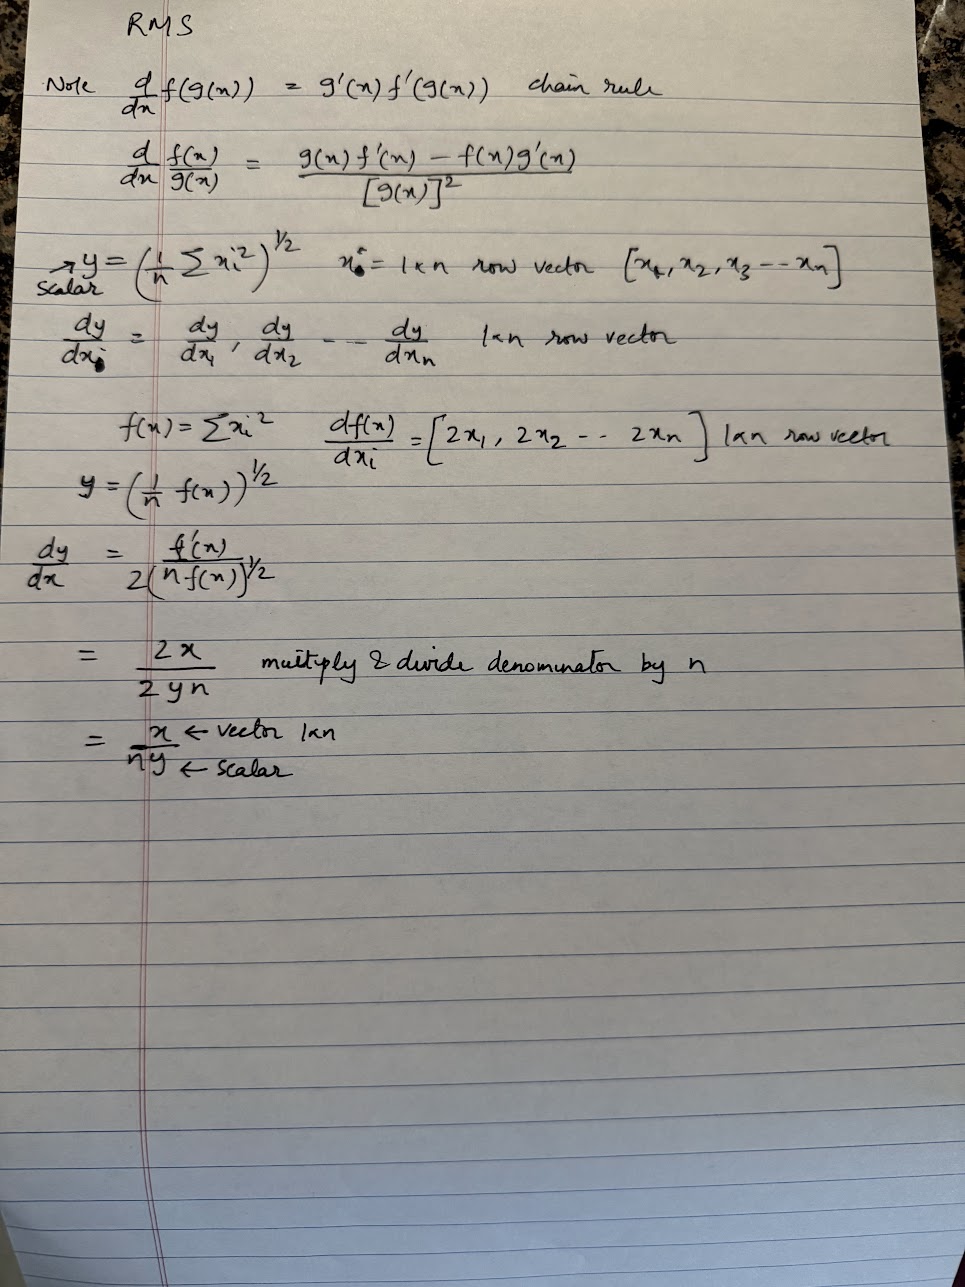 RMS
Note d/dx f(g(x)) = g'(x) f'(g(x)) chain rule
d/dx f(x)/g(x) = g(x) f'(x) − f(x) g'(x) / [g(x)]²
→ y = (1/n Σ xi²)^1/2 xi = 1xn row vector [x1, x2, x3 --- xn]
scalar
dy/dxi = dy/dx1, dy/dx2 --- dy/dxn 1xn row vector
f(x) = Σxi² df(x)/dxi = [2x1, 2x2 -- 2xn] 1xn row vector
y = (1/n f(x))^1/2
dy/dx = f'(x) / 2(n f(x))^1/2
= 2x / 2yn multiply & divide denominator by n
= x / ny ← vector 1xn
← scalar